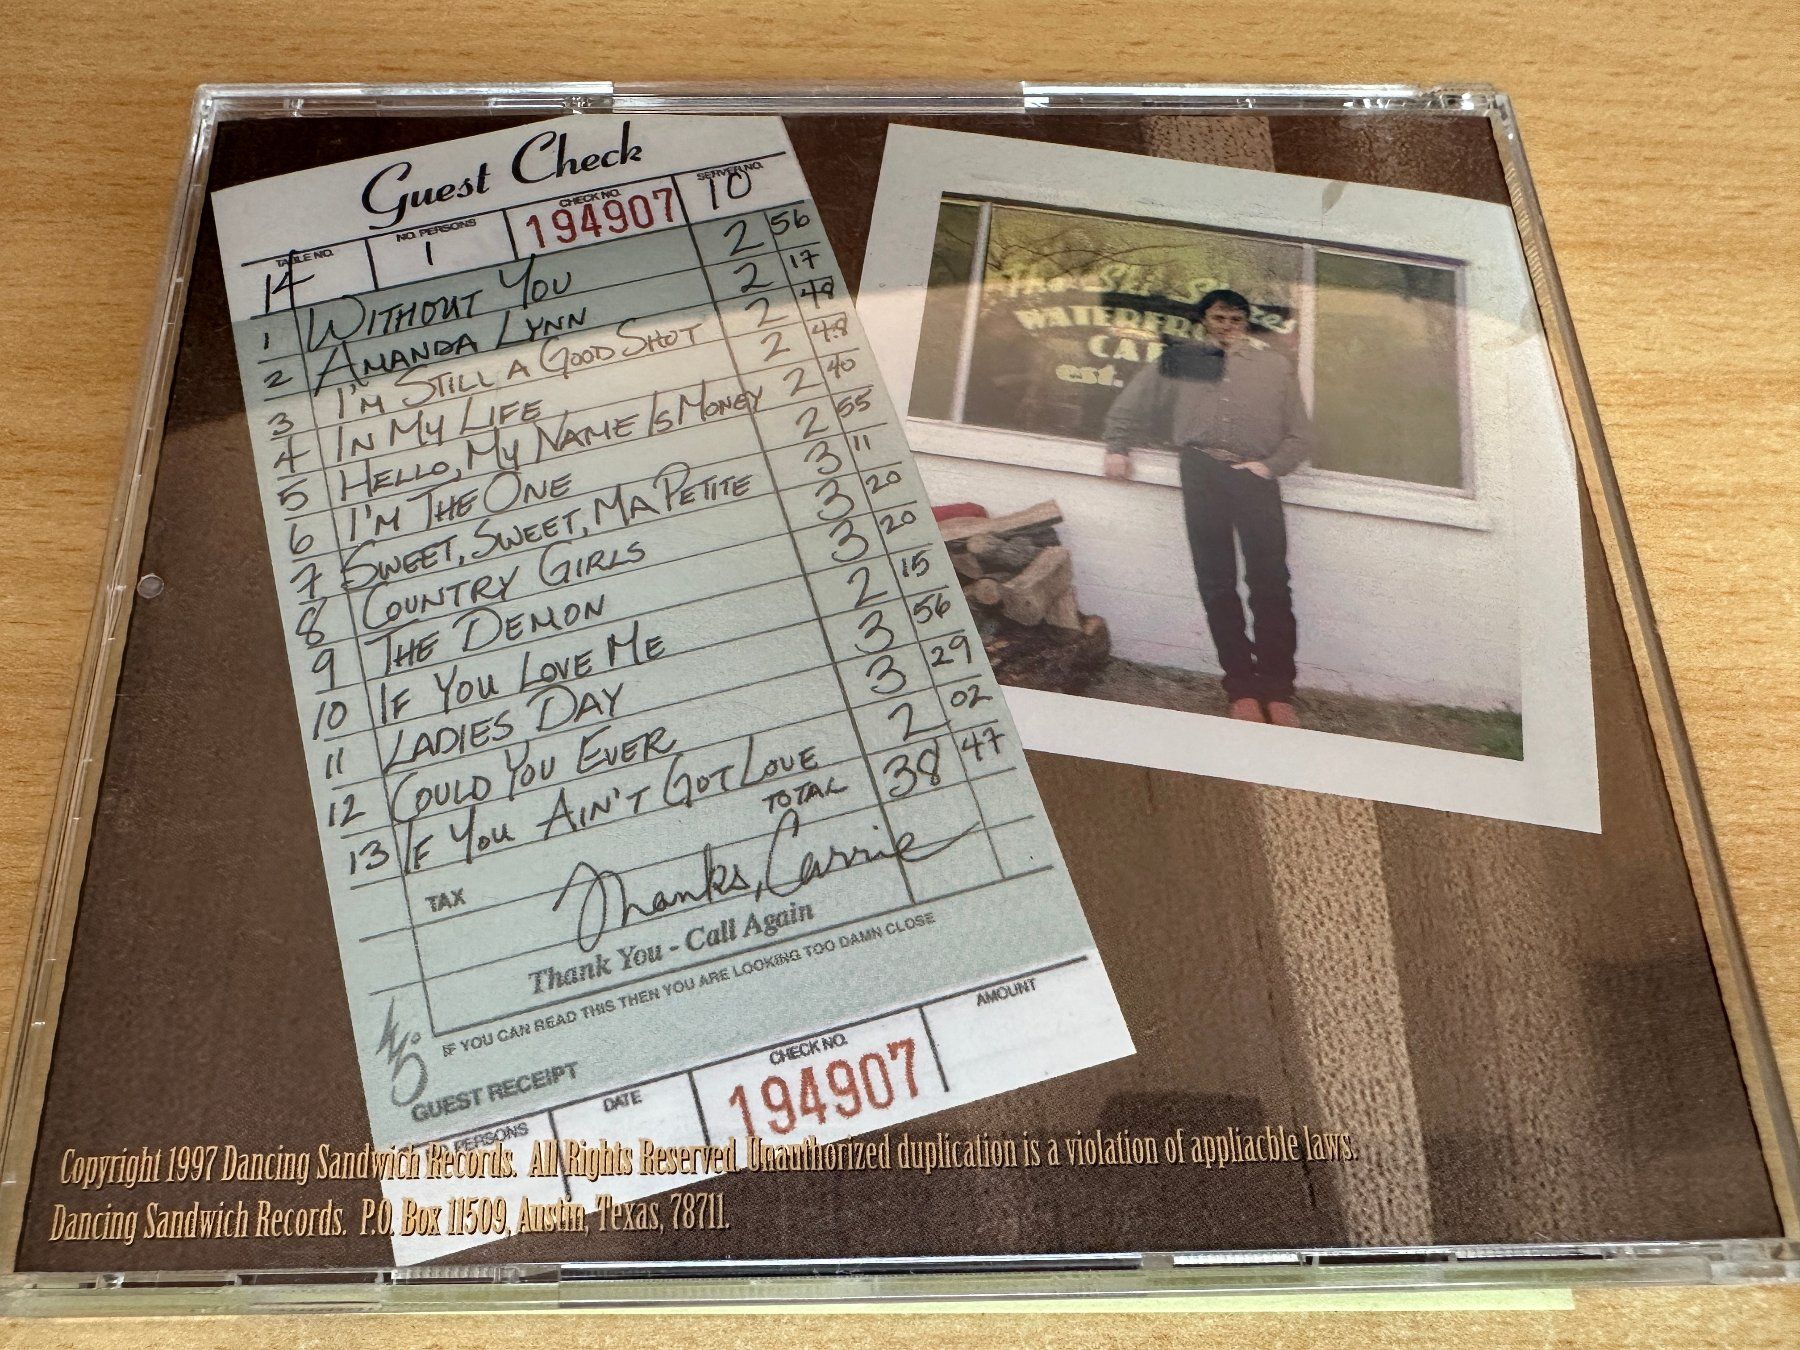 Guest Check
TABLE NO. NO. PERSONS CHECK NO. SERVER NO.
14 1 194907 10
1 WITHOUT YOU 2 56
2 AMANDA LYNN 2 17
3 I'M STILL A GOOD SHOT 2 48
4 IN MY LIFE 2 48
5 HELLO, MY NAME IS MONEY 2 40
6 I'M THE ONE 2 55
7 SWEET, SWEET, MA PETITE 3 11
8 COUNTRY GIRLS 3 20
9 THE DEMON 3 20
10 IF YOU LOVE ME 2 15
11 LADIES DAY 3 56
12 COULD YOU EVER 3 29
13 IF YOU AIN'T GOT LOVE 2 02
TOTAL 38 47
TAX
Thanks, Carrie
Thank You - Call Again
IF YOU CAN READ THIS THEN YOU ARE LOOKING TOO DAMN CLOSE
GUEST RECEIPT
PERSONS DATE CHECK NO. AMOUNT
194907
The Ski
WATERFRO
CAF
est.
Copyright 1997 Dancing Sandwich Records. All Rights Reserved. Unauthorized duplication is a violation of appliacble laws.
Dancing Sandwich Records. P.O. Box 11509, Austin, Texas, 78711.